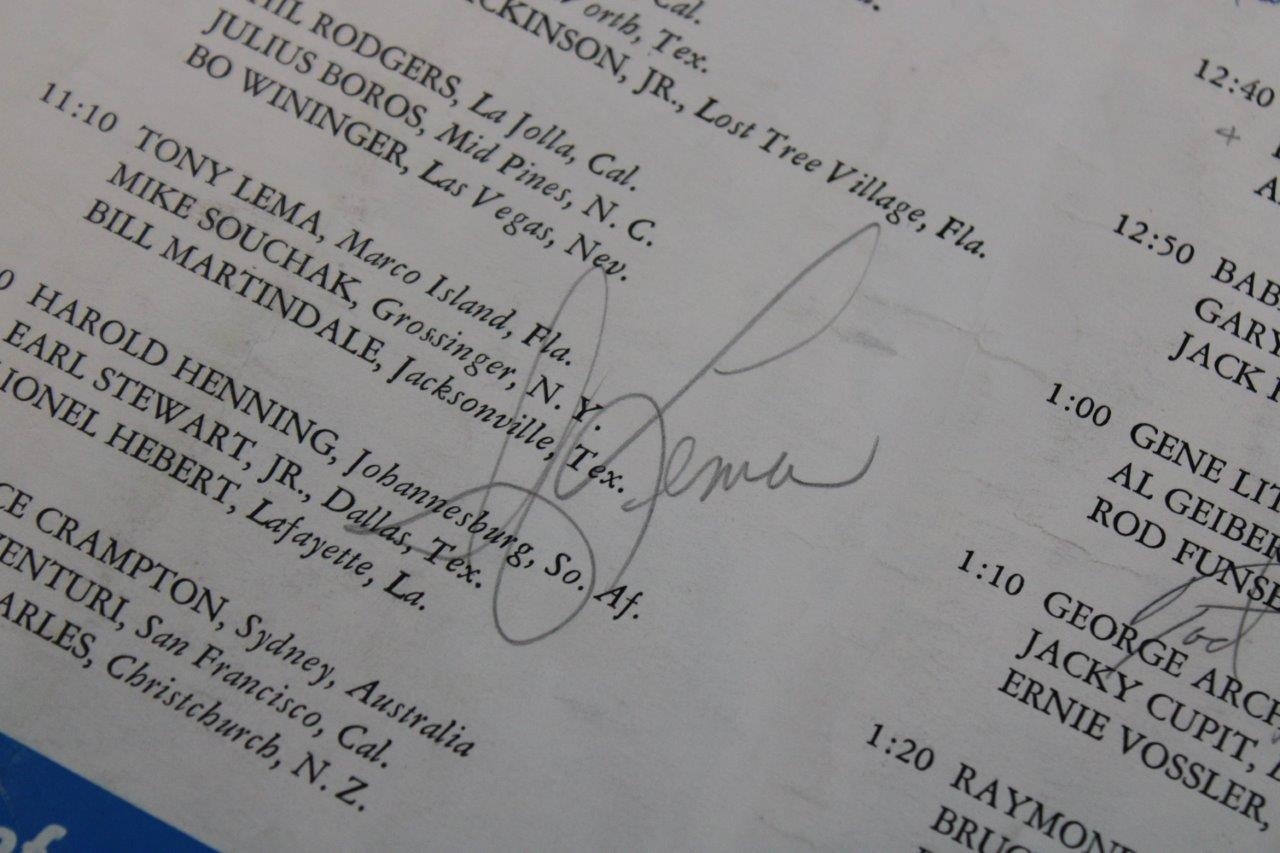 Cal.
orth, Tex.
CKINSON, JR., Lost Tree Village, Fla.
HIL RODGERS, La Jolla, Cal.
JULIUS BOROS, Mid Pines, N. C.
BO WININGER, Las Vegas, Nev.
11:10 TONY LEMA, Marco Island, Fla.
MIKE SOUCHAK, Grossinger, N. Y.
BILL MARTINDALE, Jacksonville, Tex.
Lema
0 HAROLD HENNING, Johannesburg, So. Af.
EARL STEWART, JR., Dallas, Tex.
IONEL HEBERT, Lafayette, La.
CE CRAMPTON, Sydney, Australia
ENTURI, San Francisco, Cal.
ARLES, Christchurch, N. Z.
of
12:40
12:50 BAB
GARY
JACK
1:00 GENE LIT
AL GEIBER
ROD FUNSE
Rod
1:10 GEORGE ARCH
JACKY CUPIT,
ERNIE VOSSLER,
1:20 RAYMON
BRUC